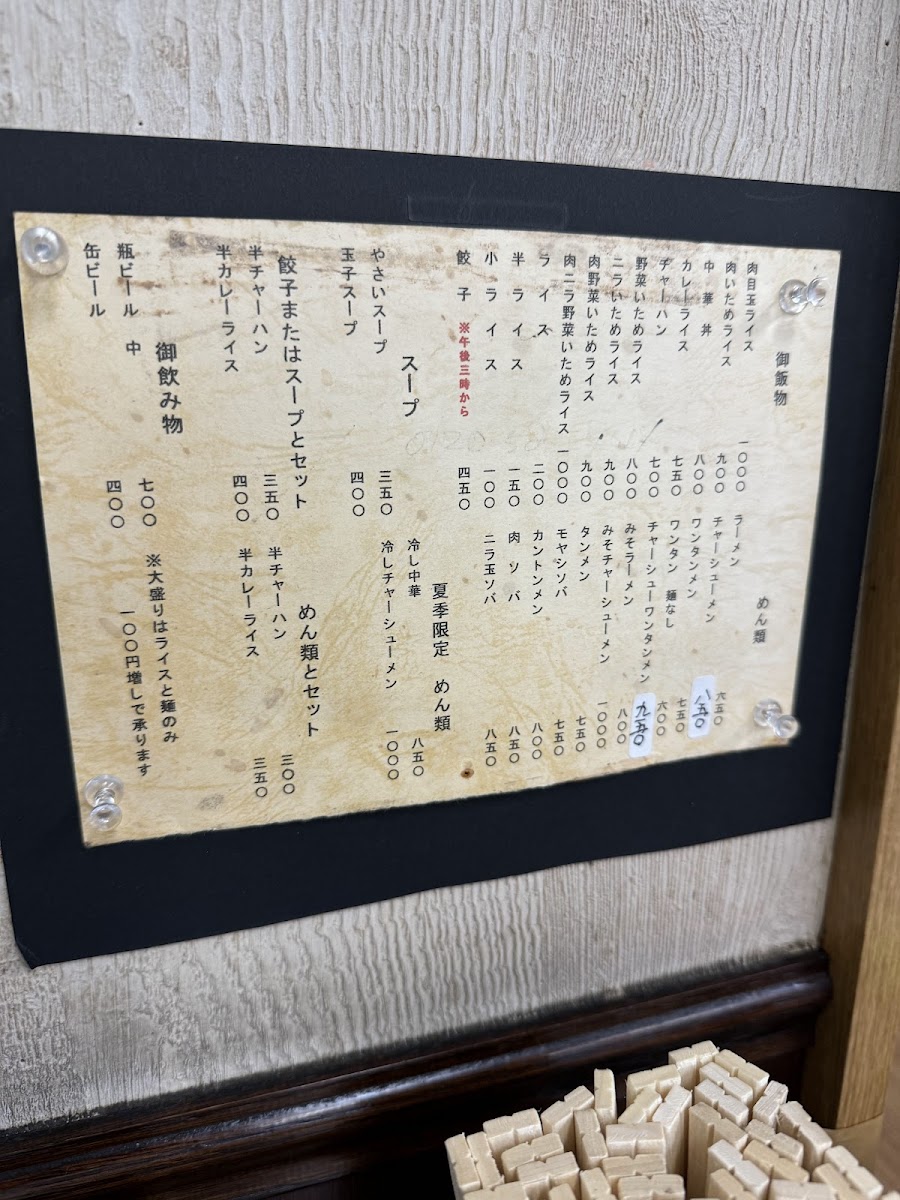 御飯物
肉目玉ライス 一〇〇〇
肉いためライス 九〇〇
中華丼 八〇〇
カレーライス 七五〇
チャーハン 七〇〇
野菜いためライス 八〇〇
ニラいためライス 九〇〇
肉野菜いためライス 九〇〇
肉ニラ野菜いためライス 一〇〇〇
ライス 二〇〇
半ライス 一五〇
小ライス 一〇〇
餃子 ※午後三時から 四五〇
スープ
やさいスープ 三五〇
玉子スープ 四〇〇
餃子またはスープとセット
半チャーハン 三五〇
半カレーライス 四〇〇
御飲み物
瓶ビール 中 七〇〇
缶ビール 四〇〇
めん類
ラーメン 六五〇
チャーシューメン 八五〇
ワンタンメン 七五〇
ワンタン 麺なし 六〇〇
チャーシューワンタンメン 九五〇
みそラーメン 八〇〇
みそチャーシューメン 一〇〇〇
タンメン 七五〇
モヤシソバ 七五〇
カントンメン 八〇〇
肉ソバ 八五〇
ニラ玉ソバ 八五〇
夏季限定 めん類
冷し中華 八五〇
冷しチャーシューメン 一〇〇〇
めん類とセット
半チャーハン 三〇〇
半カレーライス 三五〇
※大盛りはライスと麺のみ
一〇〇円増しで承ります